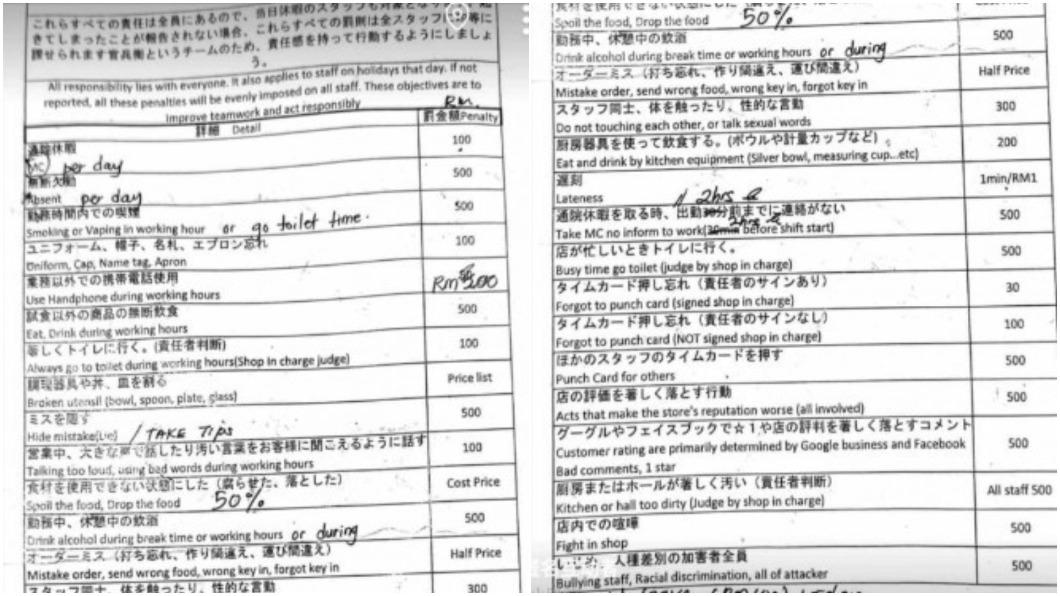 これらすべての責任は全員にあるので、当日休暇のスタッフも対象と
きてしまったことが報告されない場合、これらすべての罰則は全スタッフに 等に
課せられます 責任感を持って行動するようにしましょ
う。
All responsibility lies with everyone. It also applies to staff on holidays that day. If not
reported, all these penalties will be evenly imposed on all staff. These objectives are to
Improve teamwork and act responsibly
Rm.
詳細 Detail 罰金額Penalty
通院休暇 100
MC per day
無断欠勤 500
Absent per day
勤務時間内での喫煙 500
Smoking or Vaping in working hour or go toilet time.
ユニフォーム、帽子、名札、エプロン忘れ 100
Uniform, Cap, Name tag, Apron
業務以外での携帯電話使用
Use Handphone during working hours
試食以外の商品の無断飲食 500
Eat, Drink during working hours
著しくトイレに行く。(責任者判断) 100
Always go to toilet during working hours(Shop In charge judge)
調理器具や丼、皿を割る Price list
Broken utensil (bowl, spoon, plate, glass)
ミスを隠す 500
Hide mistake(Lie) / TAKE Tips
営業中、大きな声で話したり汚い言葉をお客様に聞こえるように話す 100
Talking too loud, using bad words during working hours
食材を使用できない状態にした（腐らせた、落とした） Cost Price
Spoil the food, Drop the food 50%
勤務中、休憩中の飲酒 500
Drink alcohol during break time or working hours or during
オーダーミス（打ち忘れ、作り間違え、運び間違え） Half Price
Mistake order, send wrong food, wrong key in, forgot key in
スタッフ同士、体を触ったり、性的な言動 300
食材を使用できない状態にした
Spoil the food, Drop the food 50%
勤務中、休憩中の飲酒 500
Drink alcohol during break time or working hours or during
オーダーミス（打ち忘れ、作り間違え、運び間違え） Half Price
Mistake order, send wrong food, wrong key in, forgot key in
スタッフ同士、体を触ったり、性的な言動 300
Do not touching each other, or talk sexual words
厨房器具を使って飲食する。(ボウルや計量カップなど) 200
Eat and drink by kitchen equipment (Silver bowl, measuring cup...etc)
遅刻 1min/RM1
Lateness 2hrs
通院休暇を取る時、出勤30分前までに連絡がない 500
2hrs
Take MC no inform to work(30min before shift start)
店が忙しいときトイレに行く。 500
Busy time go toilet (judge by shop in charge)
タイムカード押し忘れ（責任者のサインあり） 30
Forgot to punch card (signed shop in charge)
タイムカード押し忘れ（責任者のサインなし） 100
Forgot to punch card (NOT signed shop in charge)
ほかのスタッフのタイムカードを押す 500
Punch Card for others
店の評価を著しく落とす行動 500
Acts that make the store's reputation worse (all involved)
グーグルやフェイスブックで☆１や店の評判を著しく落とすコメント
Customer rating are primarily determined by Google business and Facebook 500
Bad comments, 1 star
厨房またはホールが著しく汚い（責任者判断） All staff 500
Kitchen or hall too dirty (Judge by shop in charge)
店内での喧嘩 500
Fight in shop
人種差別の加害者全員 500
Bullying staff, Racial discrimination, all of attacker